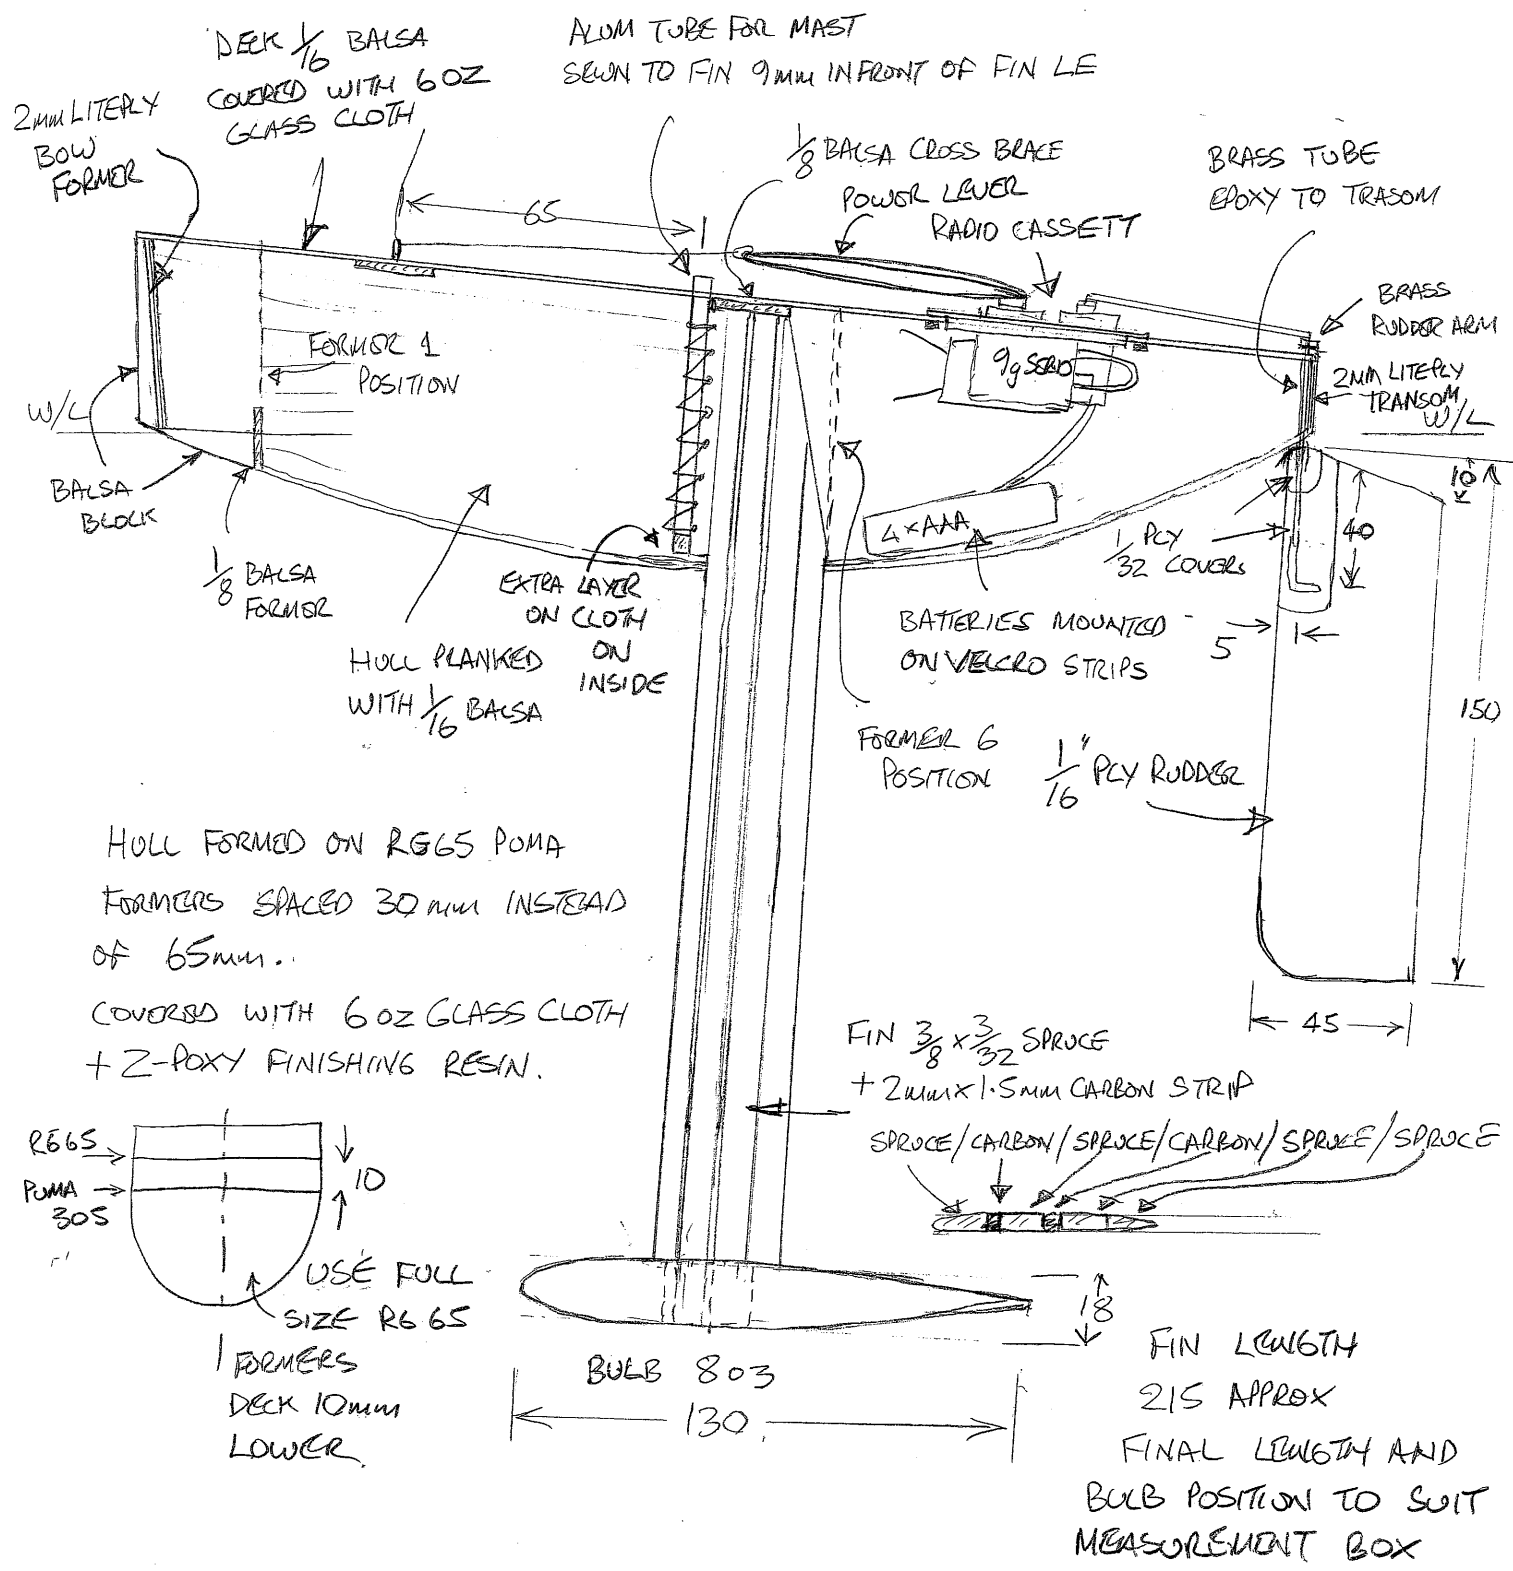 DECK 1/16 BALSA
COVERED WITH 6OZ
GLASS CLOTH
ALUM TUBE FOR MAST
SEWN TO FIN 9mm INFRONT OF FIN LE
2mm LITEPLY
BOW
FORMER
1/8 BALSA CROSS BRACE
POWER LEVER
RADIO CASSETT
BRASS TUBE
EPOXY TO TRASOM
65
BRASS
RUDDER ARM
FORMER 1
POSITION
9g SERVO
2MM LITEPLY
TRANSOM
W/L
W/L
BALSA
BLOCK
1/8 BALSA
FORMER
4 x AAA
1/32 PLY
COVERS
10
40
5
150
EXTRA LAYER
ON CLOTH
ON
INSIDE
HULL PLANKED
WITH 1/16 BALSA
BATTERIES MOUNTED
ON VELCRO STRIPS
FORMER 6
POSITION
1/16" PLY RUDDER
HULL FORMED ON RG65 PUMA
FORMERS SPACED 30mm INSTEAD
OF 65mm.
COVERED WITH 6OZ GLASS CLOTH
+ Z-POXY FINISHING RESIN.
45
FIN 3/8 x 3/32 SPRUCE
+ 2mm x 1.5mm CARBON STRIP
SPRUCE/CARBON/SPRUCE/CARBON/SPRUCE/SPRUCE
RG65
PUMA
305
10
USE FULL
SIZE RG65
FORMERS
DECK 10mm
LOWER
18
BULB 803
130
FIN LENGTH
215 APPROX
FINAL LENGTH AND
BULB POSITION TO SUIT
MEASUREMENT BOX